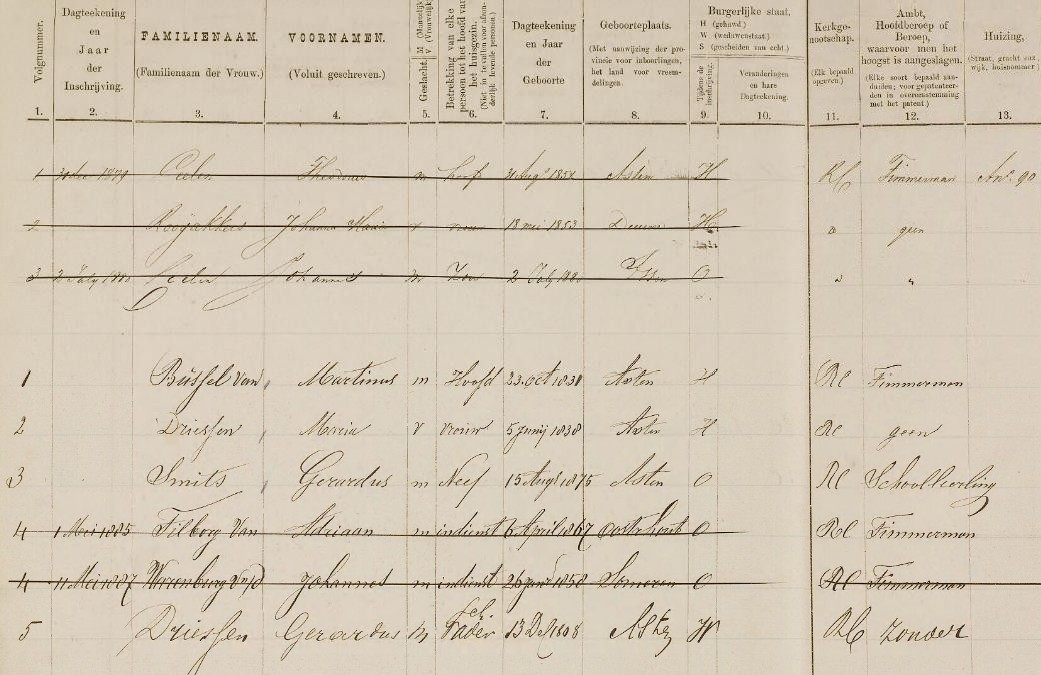 Volgnummer.
Dagteekening en Jaar der Inschrijving.
FAMILIENAAM. (Familienaam der Vrouw.)
VOORNAMEN. (Voluit geschreven.)
Geslacht. M (Mannelijk) V (Vrouwelijk)
Betrekking van elke persoon tot het hoofd van het huisgezin.
Dagteekening en Jaar der Geboorte
Geboorteplaats. (Met aanwijzing der provincie voor inboorlingen, het land voor vreemdelingen.
Burgerlijke staat, H (gehuwd.) W (weduwenstaat.) S (gescheiden van echt.)
Tijdens de inschrijving.
Veranderingen en hare Dagteekening.
Kerkgenootschap. (Elk bepaald opgeven.)
Ambt, Hoofdberoep of Beroep, waarvoor men het hoogst is aangeslagen. (Elke soort bepaald aanduiden; voor gepatenteerden in overeenstemming met het patent.)
Huizing, (Straat, gracht enz., wijk, huisnummer.)
1. 2. 3. 4. 5. 6. 7. 8. 9. 10. 11. 12. 13.
1 Theodorus m hoofd Asten H RC Timmerman An. 90
2 Rooijakkers Johanna Maria v vrouw 18 mei 1853 Deurne H " geen
3 2 July 1880 Johannes m Zoon 2 July 1880 Asten O " "
1 Büssel Van Martinus m Hoofd 23 Oct 1831 Asten H RC Timmerman
2 Driessen Maria v vrouw 5 Junij 1838 Asten H RC geen
3 Smits Gerardus m Neef 15 Augt 1875 Asten O RC Schoolleerling
4 1 Mei 1885 Tilborg Van Adriaan m indienst 6 April 1867 Oosterhout O RC Timmerman
4 11 Mei 1887 Johannes m indienst 26 Janr 1858 Someren O RC Timmerman
5 Driessen Gerardus M Vader 1808 Asten W RC zonder